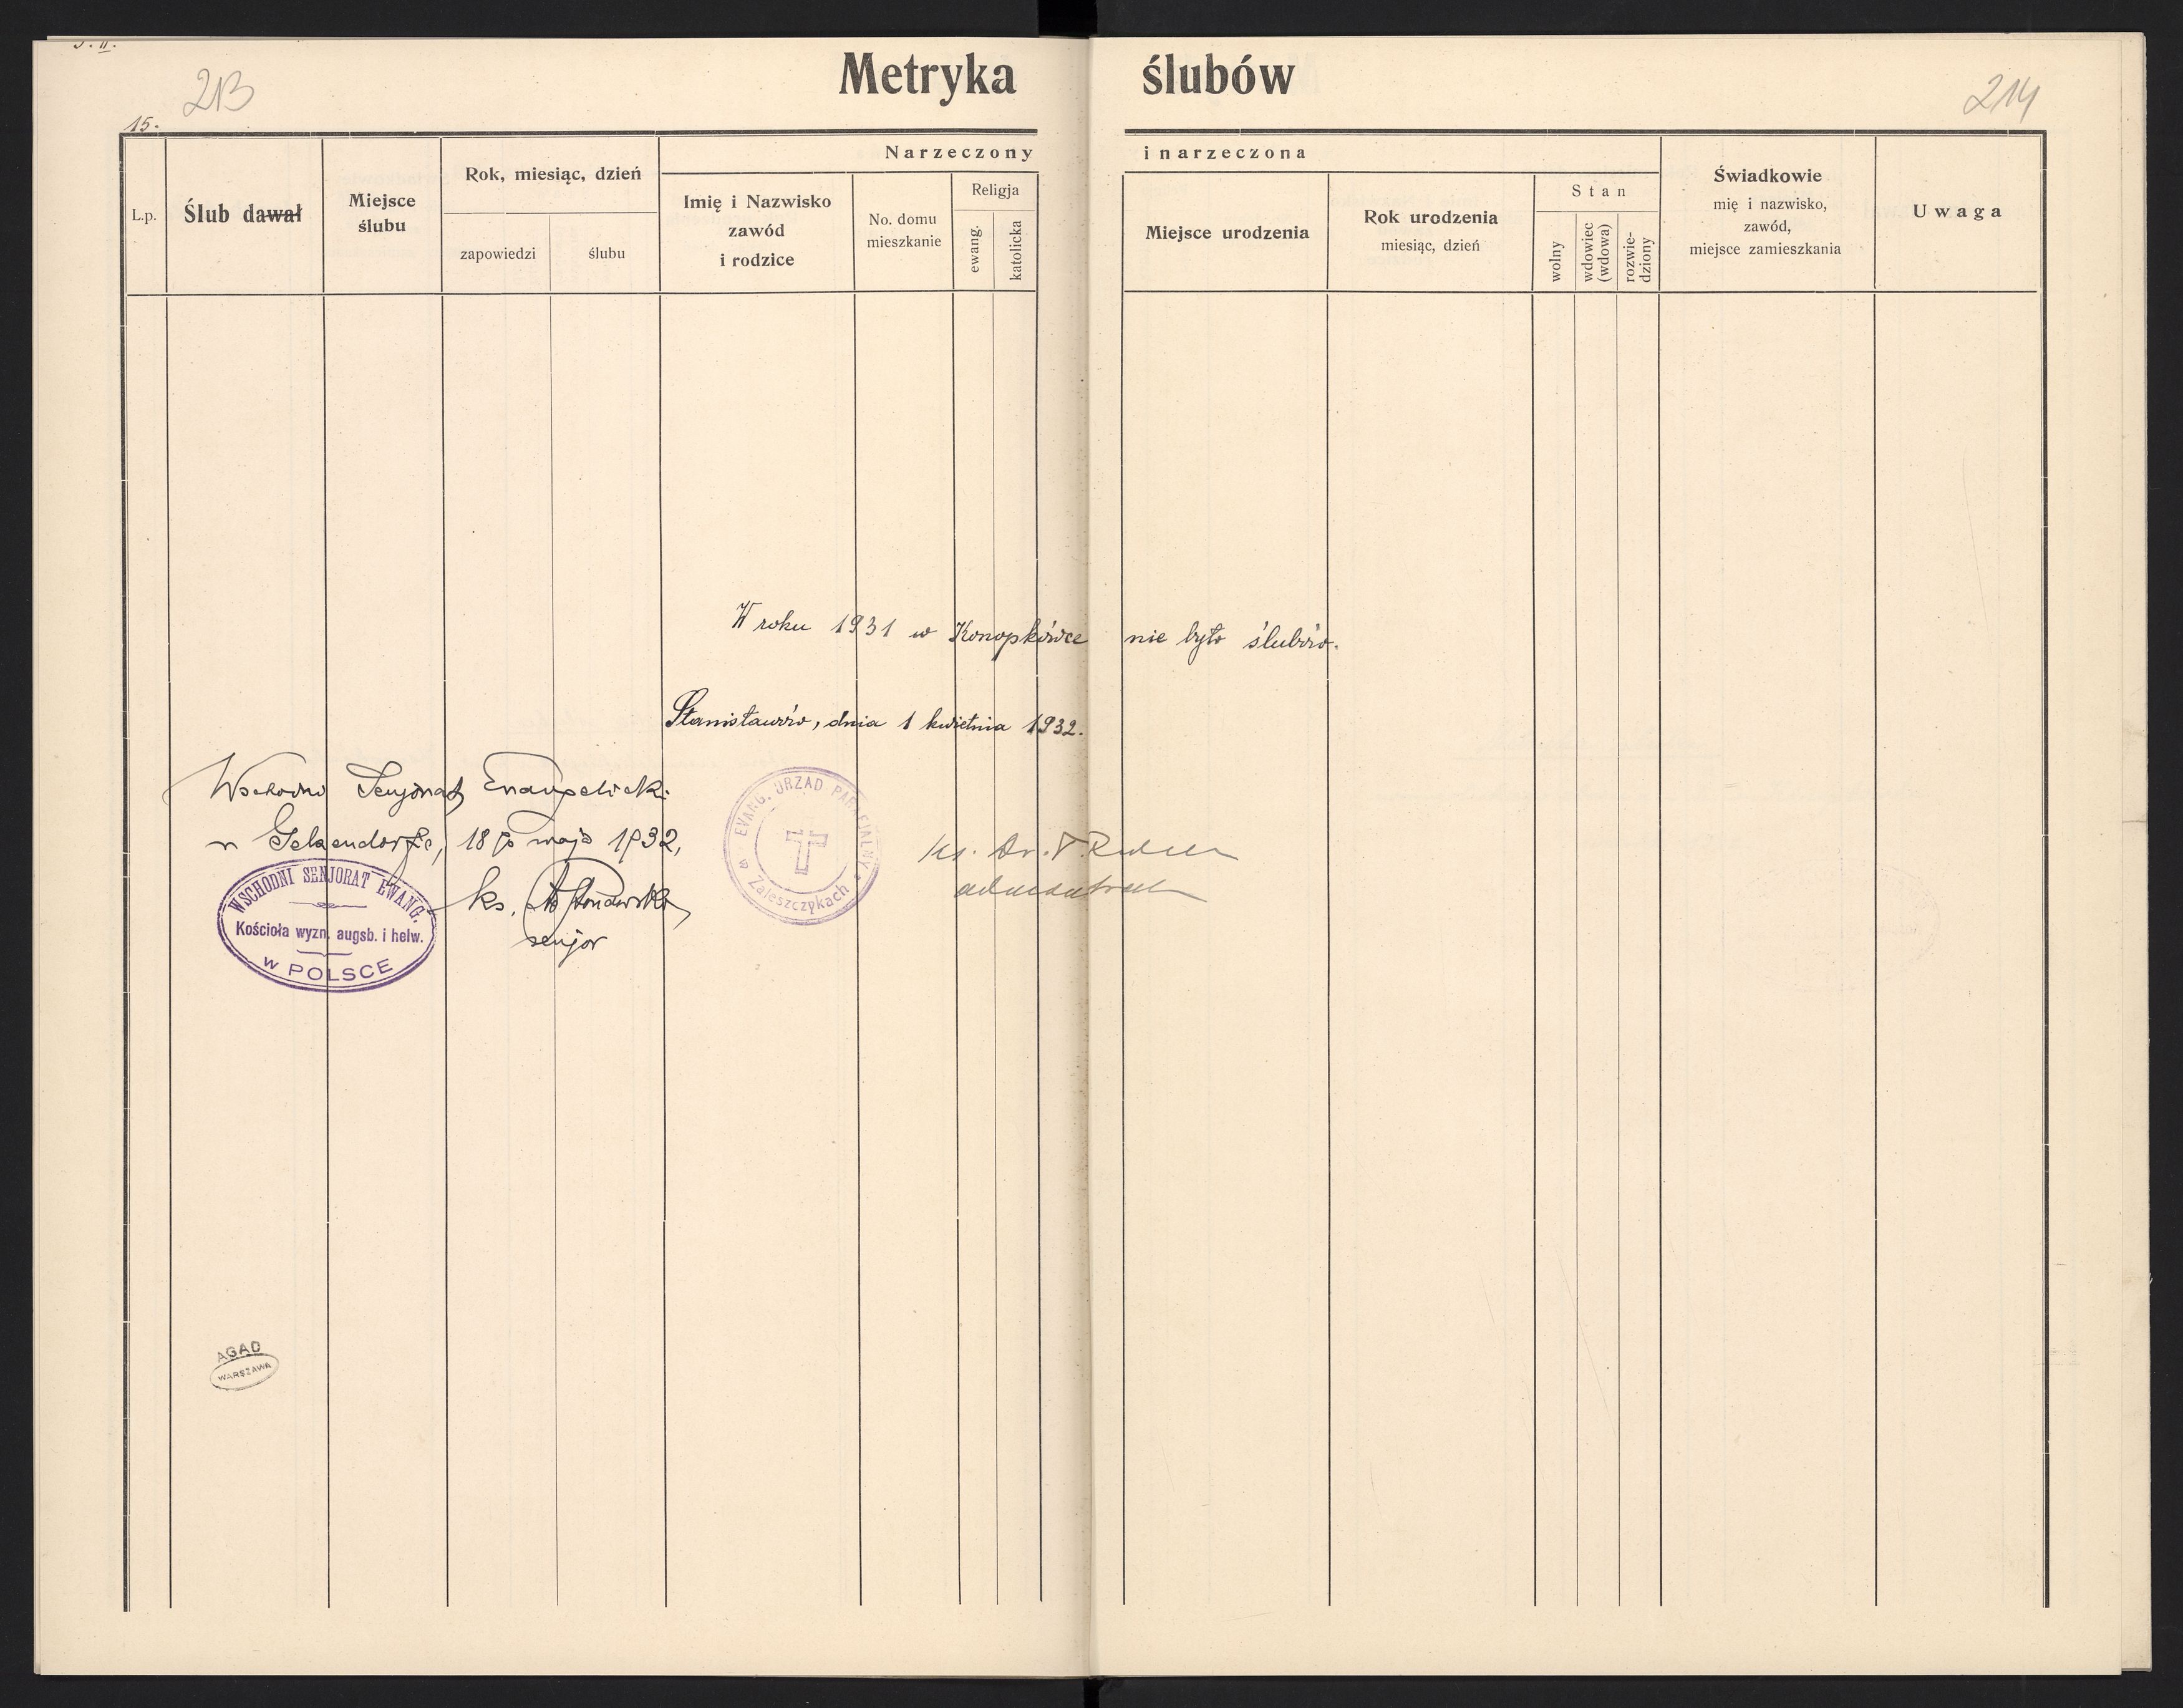 213
15.
Metryka ślubów
214
L.p.
Ślub dawał
Miejsce
ślubu
Rok, miesiąc, dzień
zapowiedzi
ślubu
Narzeczony i narzeczona
Imię i Nazwisko
zawód
i rodzice
No. domu
mieszkanie
Religja
ewang.
katolicka
Miejsce urodzenia
Rok urodzenia
miesiąc, dzień
Stan
wolny
wdowiec
(wdowa)
rozwie-
dziony
Świadkowie
mię i nazwisko,
zawód,
miejsce zamieszkania
Uwaga
W roku 1931 w Konopkówce nie było ślubów.
Stanisławów, dnia 1 kwietnia 1932.
Wschodni Senjorat Ewangelicki
w Gelsendorfie, 18go maja 1932,
ks.
senjor
WSCHODNI SENJORAT EWANG.
Kościoła wyzn. augsb. i helw.
w POLSCE
EVANG. URZAD PARAFJALNY
Zaleszczykach
ks. Dr.
AGAD
WARSZAWA